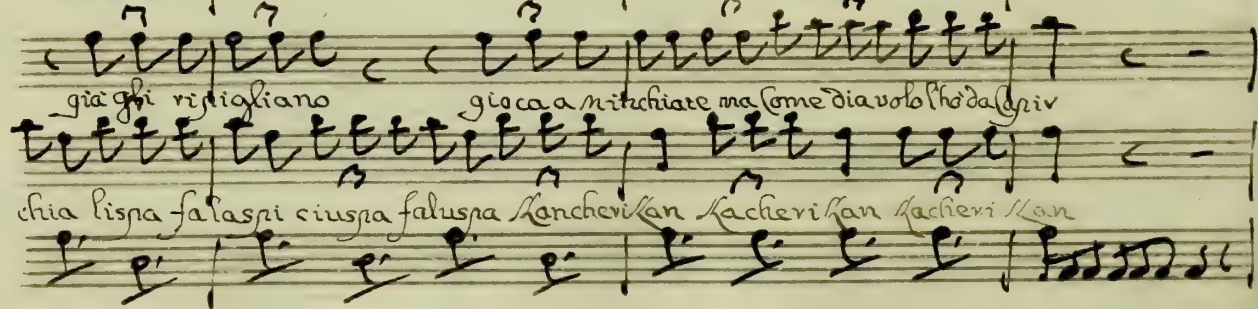 già ghi ripigliano gioca a minchiate ma come diavolo l'ho da capir
chia lispa falaspi ciuspa faluspa Kancherikan Kacherikan Kacheri Kan